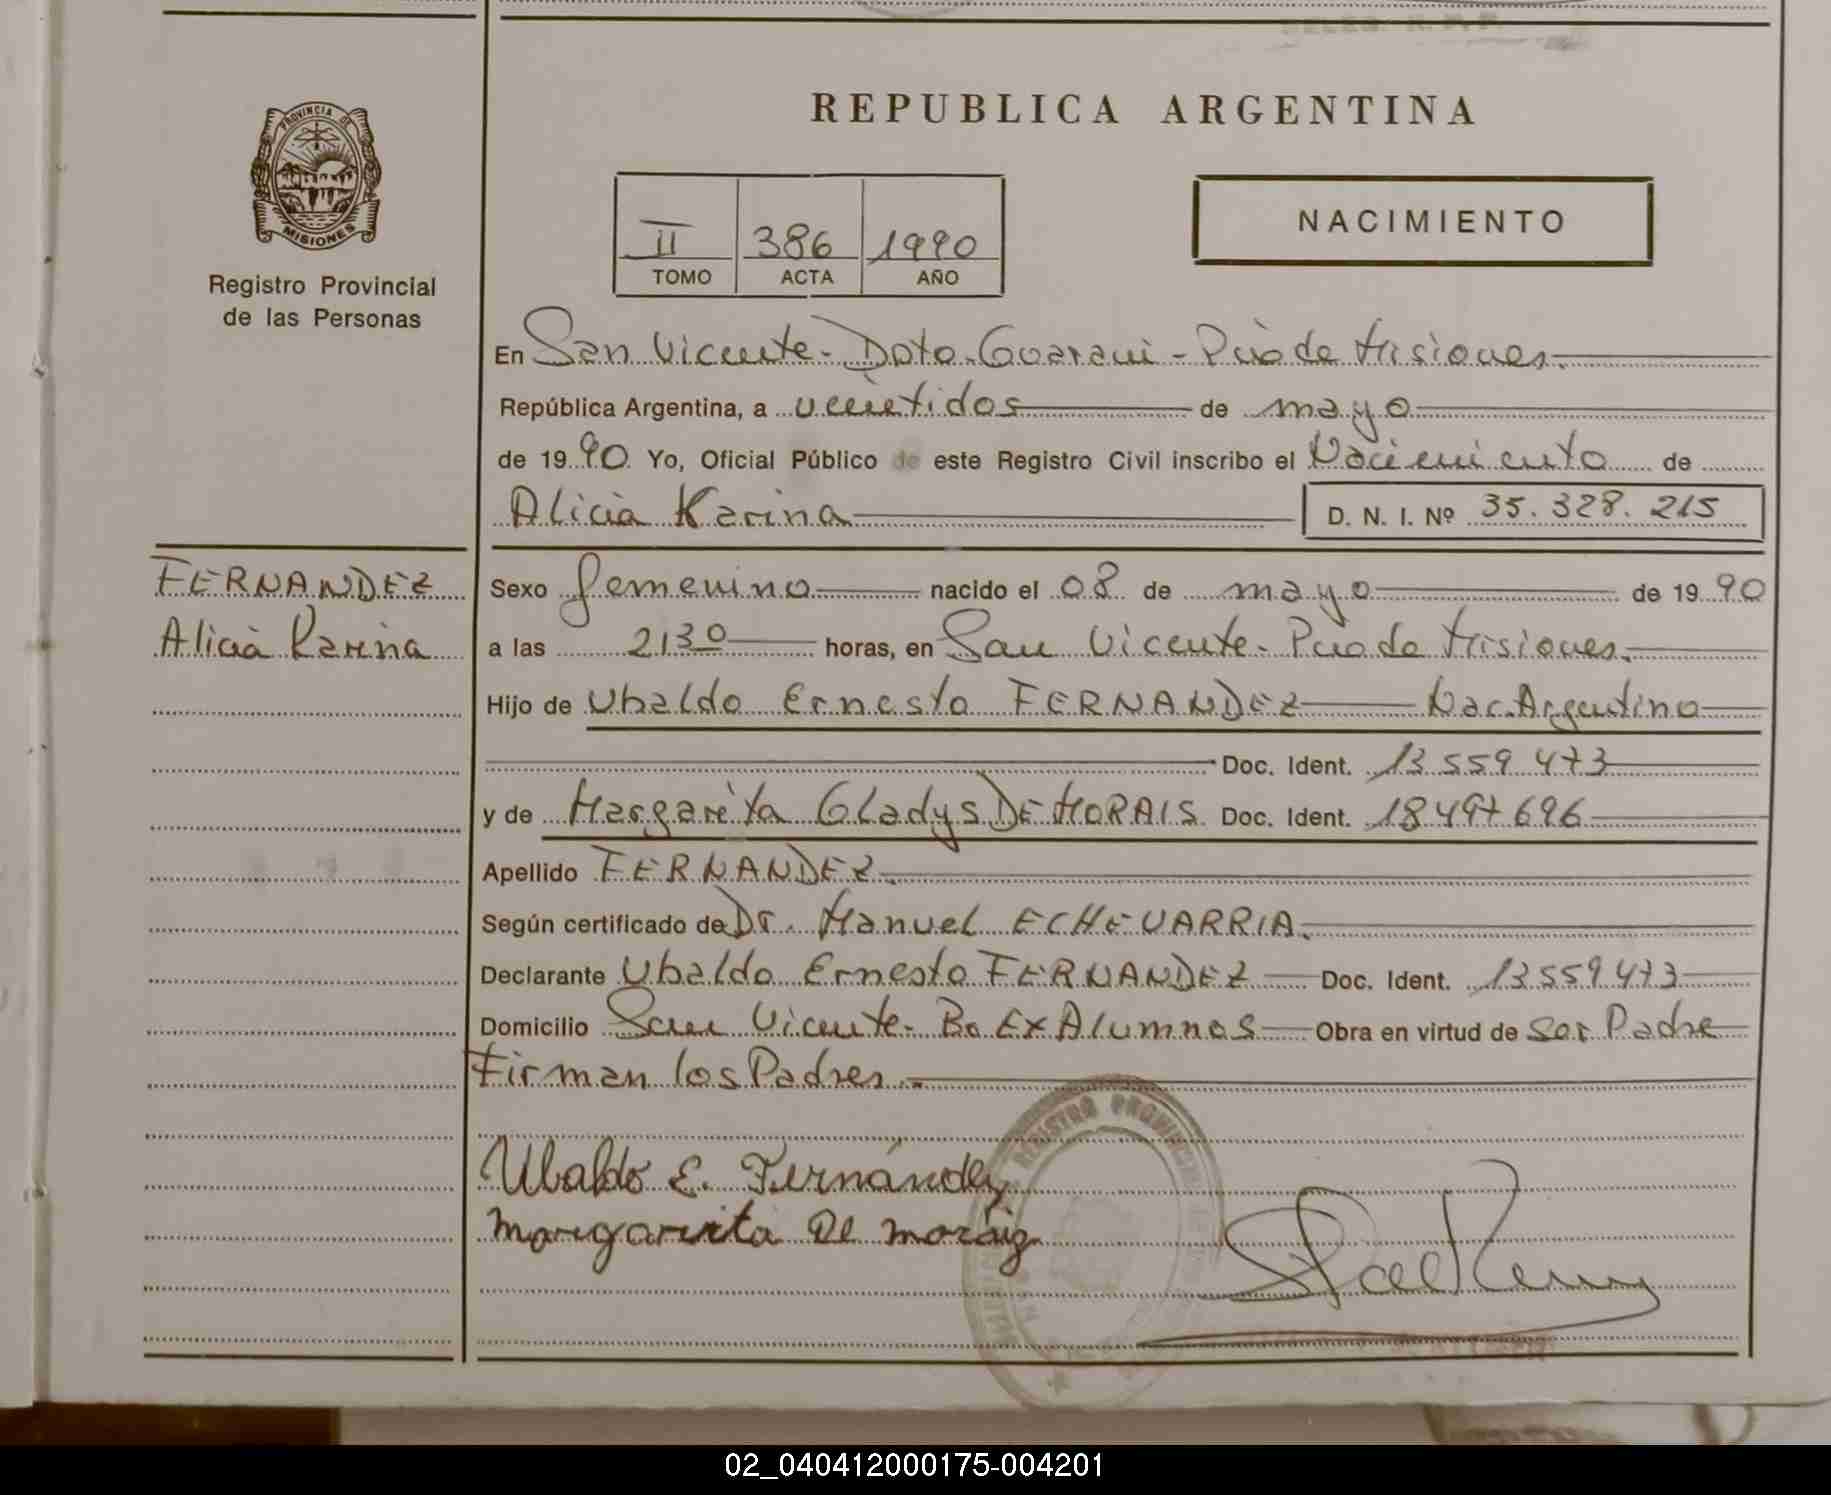 REPUBLICA ARGENTINA
PROVINCIA DE
MISIONES
Registro Provincial
de las Personas
II 386 1990
TOMO ACTA AÑO
NACIMIENTO
En San Vicente - Dpto. Guarani - Pcia de Misiones.
República Argentina, a veintidos de mayo
de 1990 Yo, Oficial Público de este Registro Civil inscribo el Nacimiento de
Alicia Karina D. N. I. Nº 35.328.215
FERNANDEZ
Alicia Karina
Sexo femenino nacido el 08 de mayo de 1990
a las 2130 horas, en San Vicente - Pcia de Misiones.
Hijo de Ubaldo Ernesto FERNANDEZ Nac. Argentino
Doc. Ident. 13 559 473
y de Margarita Gladys DE MORAIS Doc. Ident. 18 497 696
Apellido FERNANDEZ.
Según certificado de Dr. Manuel ECHEVARRIA.
Declarante Ubaldo Ernesto FERNANDEZ Doc. Ident. 13559473
Domicilio San Vicente - Bo Ex Alumnos Obra en virtud de ser Padre
Firman los Padres.
REGISTRO PROVINCIAL
Ubaldo E. Fernández
Margarita De Moraiz
02_040412000175-004201